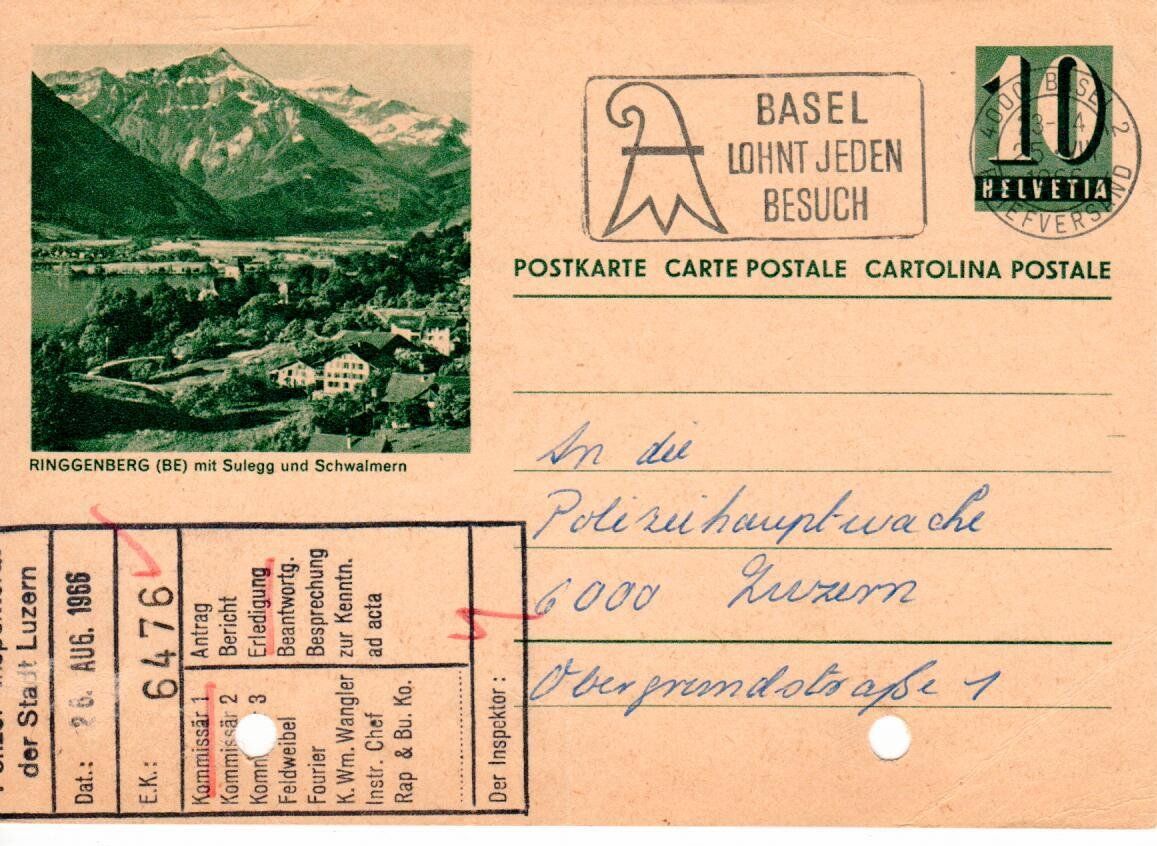 10
HELVETIA
4000 BASEL 2
BRIEFVERSAND
BASEL
LOHNT JEDEN
BESUCH
POSTKARTE CARTE POSTALE CARTOLINA POSTALE
RINGGENBERG (BE) mit Sulegg und Schwalmern
An die
Polizeihauptwache
6000 Luzern
Obergrundstraße 1
der Stadt Luzern
Dat.: 26. AUG. 1966
E.K.: 6476
Kommissär 1 Antrag
Kommissär 2 Bericht
3 Erledigung
Feldweibel Beantwortg.
Fourier Besprechung
K. Wm. Wangler zur Kenntn.
Instr. Chef ad acta
Rap & Bu. Ko.
Der Inspektor: